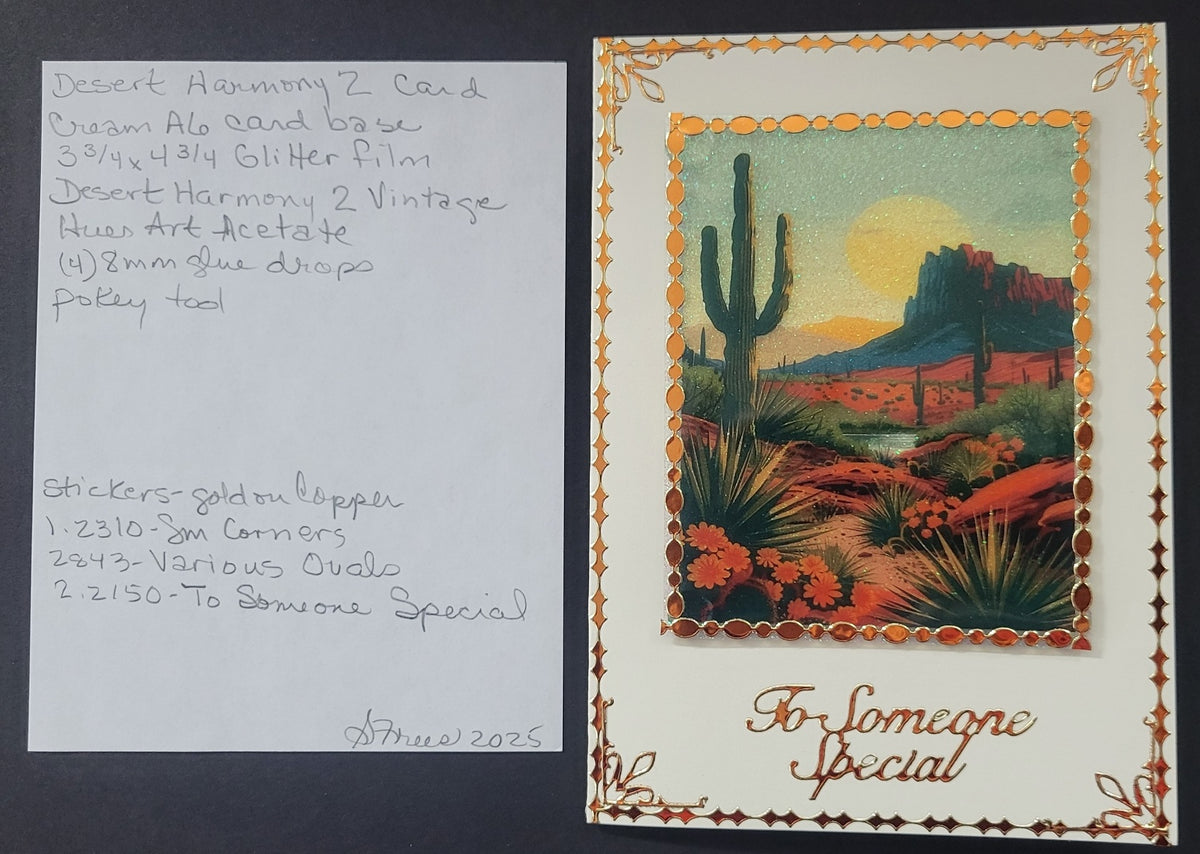 Desert Harmony 2 Card
Cream A6 card base
3 3/4 x 4 3/4 Glitter film
Desert Harmony 2 Vintage
Hues Art Acetate
(4) 8mm glue drops
pokey tool
stickers - gold on Copper
1.2310 - Sm Corners
2843 - Various Ovals
2.2150 - To Someone Special
SFrees 2025
To Someone
Special